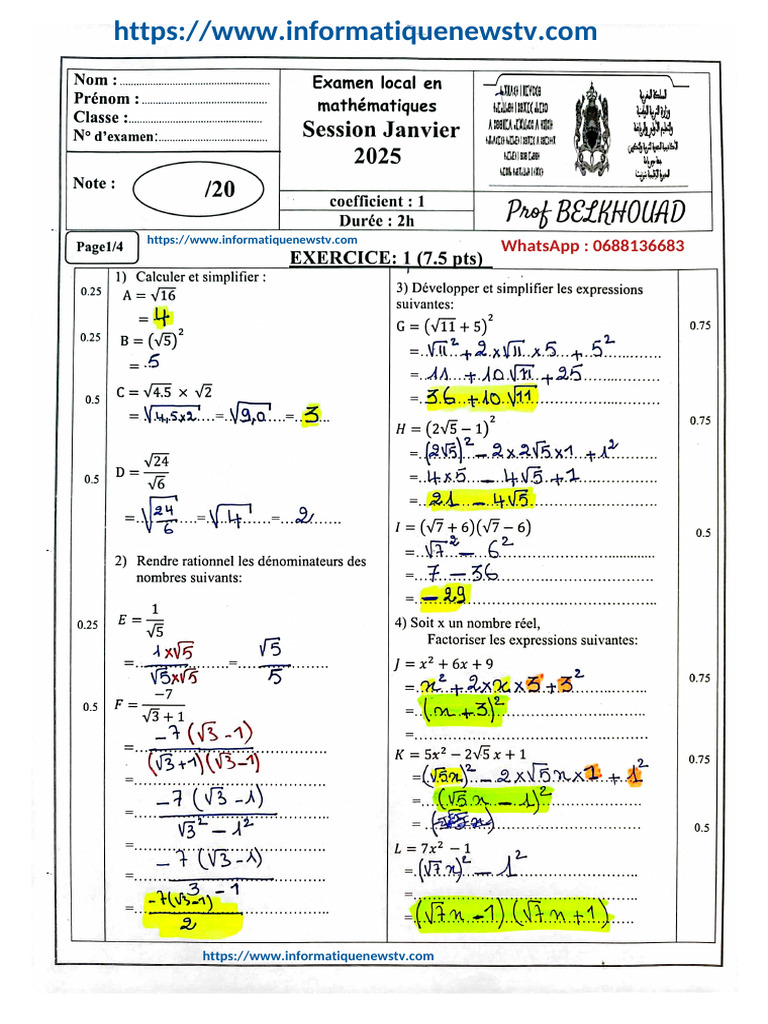 https://www.informatiquenewstv.com
Nom :
Prénom :
Classe :
N° d'examen:
Note :
/20
Examen local en
mathématiques
Session Janvier
2025
coefficient : 1
Durée : 2h
Prof BELKHOUAD
Page1/4
https://www.informatiquenewstv.com
WhatsApp : 0688136683
EXERCICE: 1 (7.5 pts)
1) Calculer et simplifier :
0.25
A = √16
= 4
0.25
B = (√5)²
= 5
0.5
C = √4.5 × √2
= √4,5×2 = √9,0 = 3
0.5
D = √24/√6
= √24/6 = √4 = 2
2) Rendre rationnel les dénominateurs des
nombres suivants:
0.25
E = 1/√5
= 1×√5/√5×√5 = √5/5
0.5
F = -7/√3 + 1
= -7(√3-1)/(√3+1)(√3-1)
= -7(√3-1)/√3²-1²
= -7(√3-1)/3-1
= -7(√3-1)/2
3) Développer et simplifier les expressions
suivantes:
G = (√11 + 5)²
0.75
= √11² + 2×√11×5 + 5²
= 11 + 10√11 + 25
= 36 + 10√11
0.75
H = (2√5 − 1)²
= (2√5)² - 2×2√5×1 + 1²
= 4×5 - 4√5 + 1
= 21 - 4√5
I = (√7 + 6)(√7 − 6)
0.5
= √7² - 6²
= 7 - 36
= -29
4) Soit x un nombre réel,
Factoriser les expressions suivantes:
J = x² + 6x + 9
0.75
= x² + 2×x×3 + 3²
= (x+3)²
=
K = 5x² − 2√5 x + 1
0.75
= (√5x)² - 2×√5x×1 + 1²
= (√5x - 1)²
=
0.5
L = 7x² − 1
= (√7x)² - 1²
=
= (√7x-1)(√7x+1)
https://www.informatiquenewstv.com